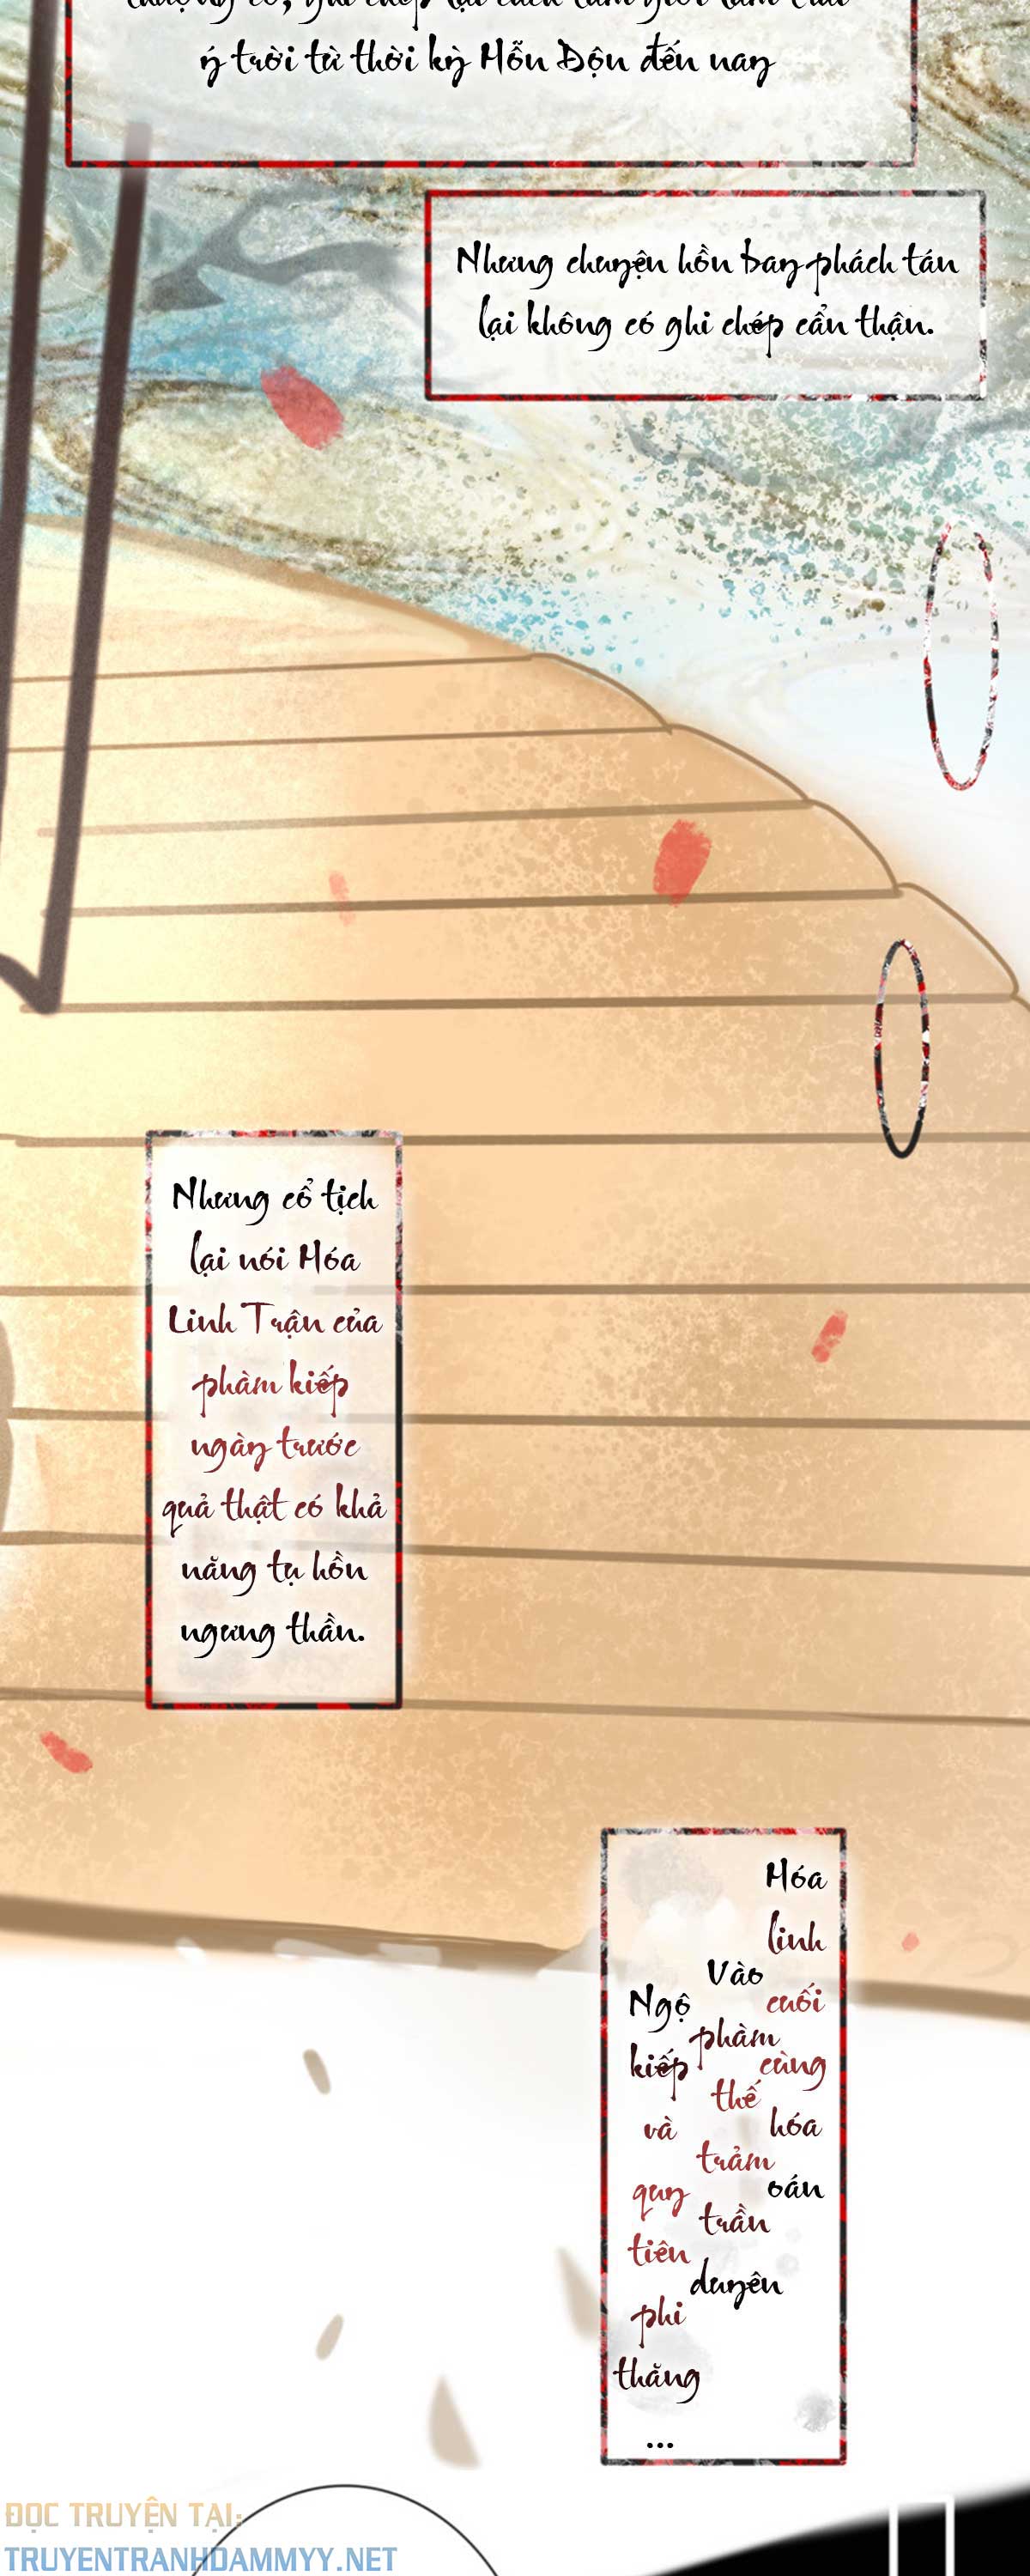 ý trời từ thời kỳ Hỗn Độn đến nay
Nhưng chuyện hồn bay phách tán
lại không có ghi chép cẩn thận.
Nhưng cổ tịch
lại nói Hóa
Linh Trận của
phàm kiếp
ngày trước
quả thật có khả
năng tụ hồn
ngưng thần.
Hóa
linh
cuối
cùng
hóa
oán
Vào
phàm
thế
trảm
trần
duyên
Ngộ
kiếp
và
quy
tiên
phi
thăng
...
ĐỌC TRUYỆN TẠI:
TRUYENTRANHDAMMYY.NET